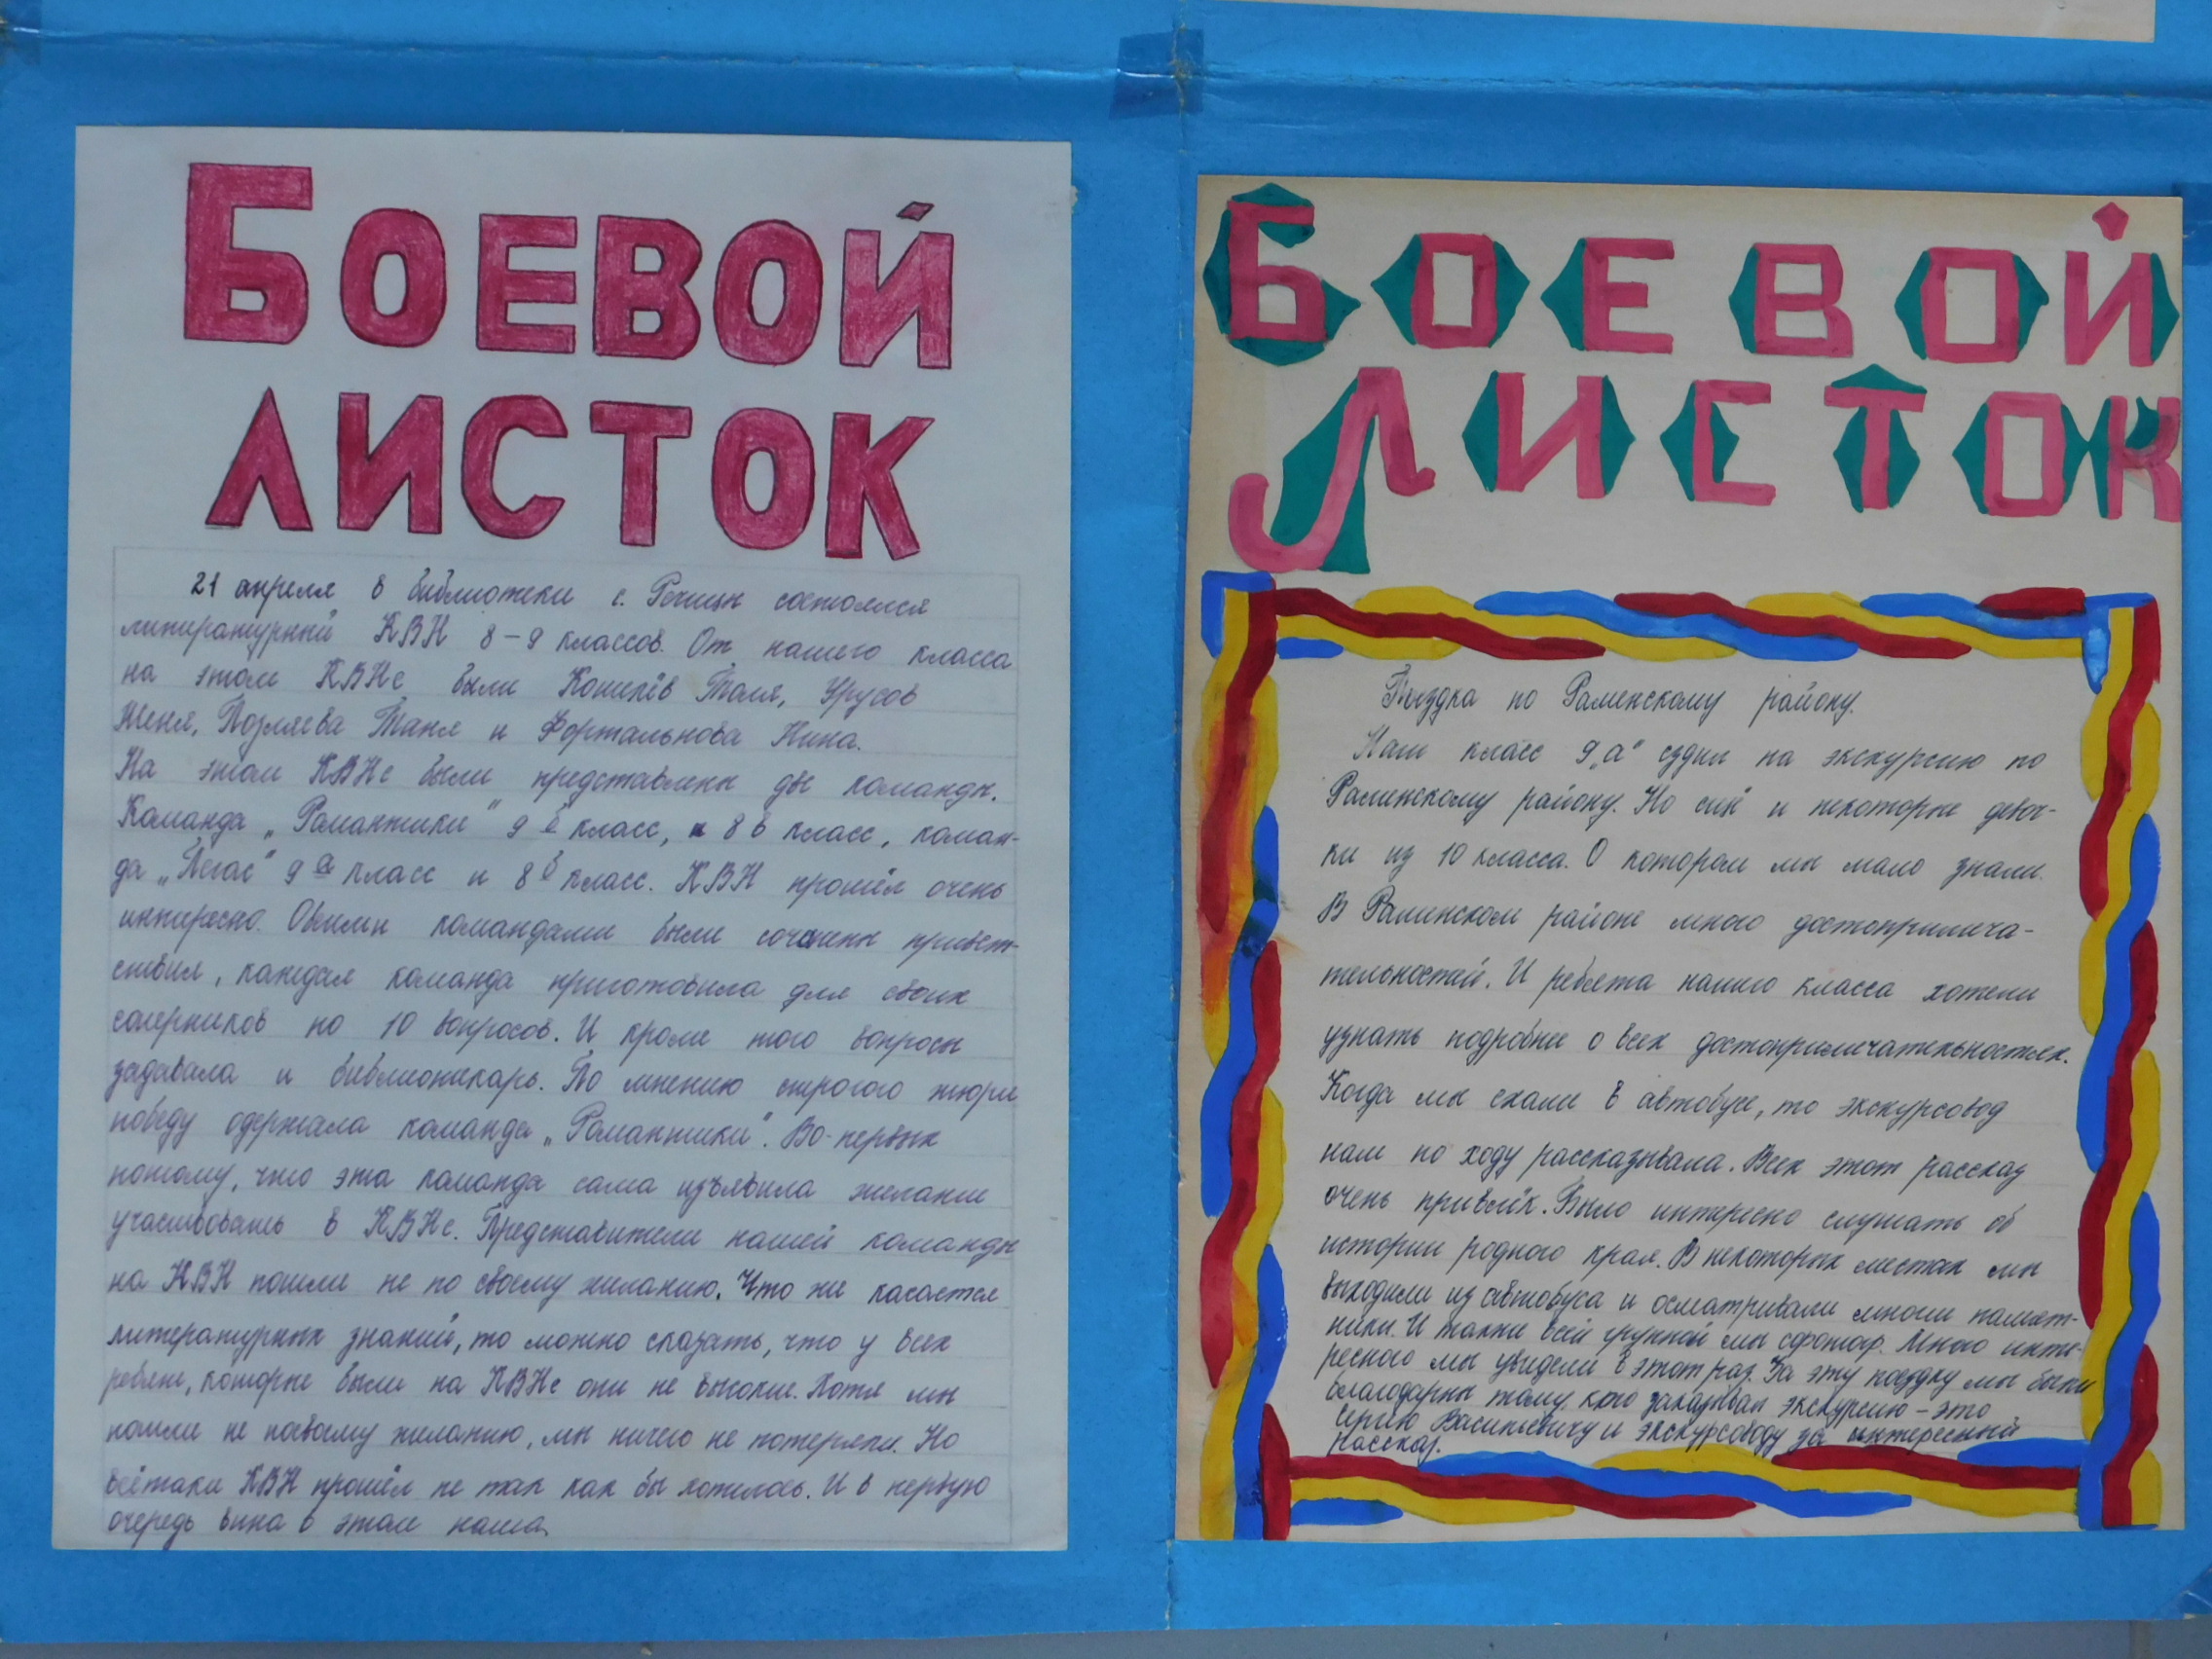 БОЕВОЙ
ЛИСТОК
21 апреля в библиотеки с. Речицы состоялся
литературный КВН 8-9 классов. От нашего класса
на этом КВНе были Кошелёв Толя, Урусов
Женя, Позляева Таня и Фортальнова Нина.
На этом КВНе были представлены две команды.
Команда „Романтики" 9 б класс, и 8 в класс, коман-
да „Пегас" 9 а класс и 8 б класс. КВН прошёл очень
интересно. Обеими командами были сочинены приветст-
ствия, каждая команда приготовила для своих
соперников по 10 вопросов. И кроме того вопросы
задавала и библиотекарь. По мнению строгого жюри
победу одержала команда „Романтики". Во-первых
потому, что эта команда сама изъявила желание
участвовать в КВНе. Представители нашей команды
на КВН пошли не по своему желанию. Что же касается
литературных знаний, то можно сказать, что у всех
ребят, которые были на КВНе они не высокие. Хотя мы
пошли не посвоему желанию, мы ничего не потеряли. Но
всётаки КВН прошёл не так как бы хотелось. И в первую
очередь вина в этом наша.
БОЕВОЙ
ЛИСТОК
Поездка по Раменскому району.
Наш класс 9„а" ездил на экскурсию по
Раменскому району. Но ещё и некоторые девоч-
ки из 10 класса. О котором мы мало знали.
В Раменском районе много достопримеча-
тельностей. И ребята нашего класса хотели
узнать подробнее о всех достопримечательностях.
Когда мы ехали в автобусе, то экскурсовод
нам по ходу рассказывала. Всех этот рассказ
очень привлёк. Было интересно слушать об
истории родного края. В некоторых местах мы
выходили из автобуса и осматривали многие памят-
ники. И также всей группой мы сфотогр. Много инте-
ресного мы увидели в этот раз. За эту поездку мы были
благодарны тому, кто заказывал экскурсию - это
Сергею Васильевичу и экскурсоводу за интересный
рассказ.